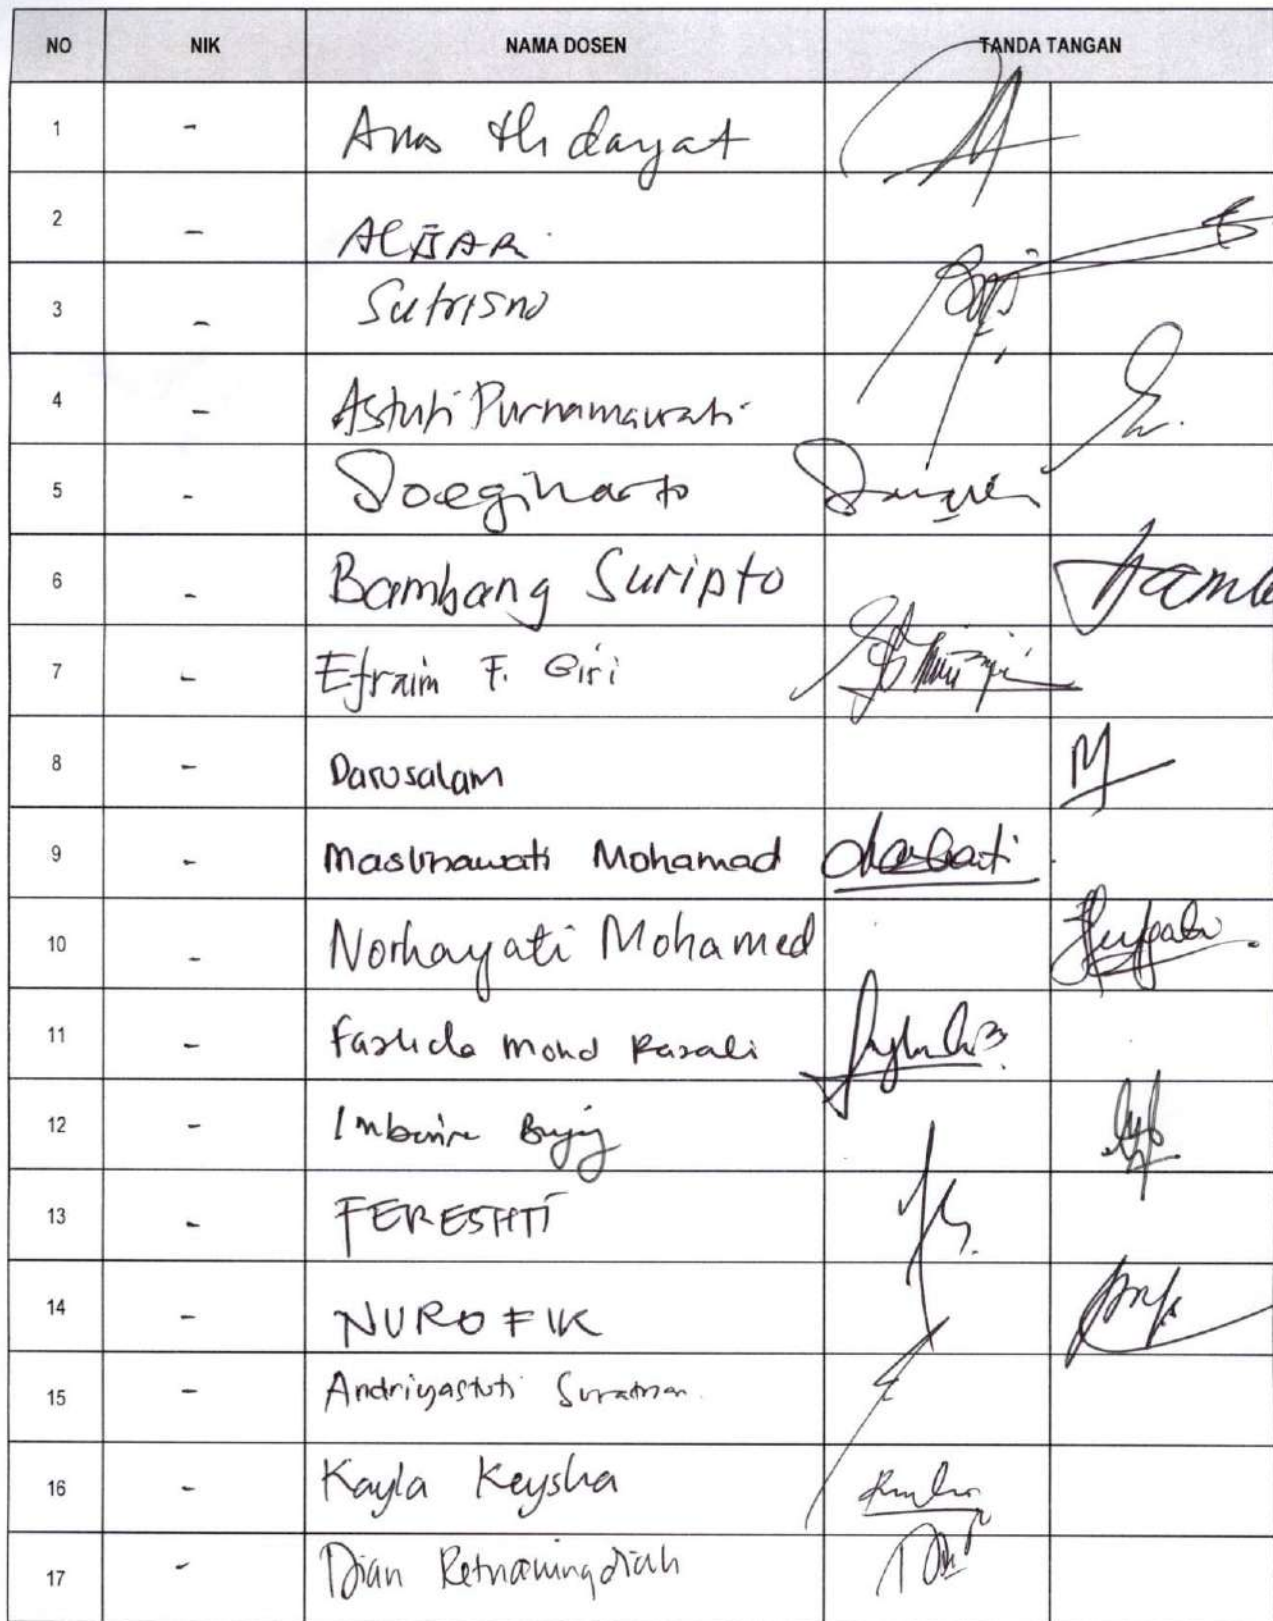 NO NIK NAMA DOSEN TANDA TANGAN
1 - Anas Hidayat
2 -
3 - Sutrisno
4 - Astuti Purnamawati
5 - Soeginarto
6 - Bambang Suripto
7 - Efraim F. Giri
8 - Darusalam
9 - Masunawati Mohamad
10 - Norhayati Mohamed
11 - Mohd Razali
12 -
13 - FERESHTI
14 - NUROFIK
15 - Andriyastuti Suratman
16 - Kayla Keysha
17 - Dian Retnaningdiah